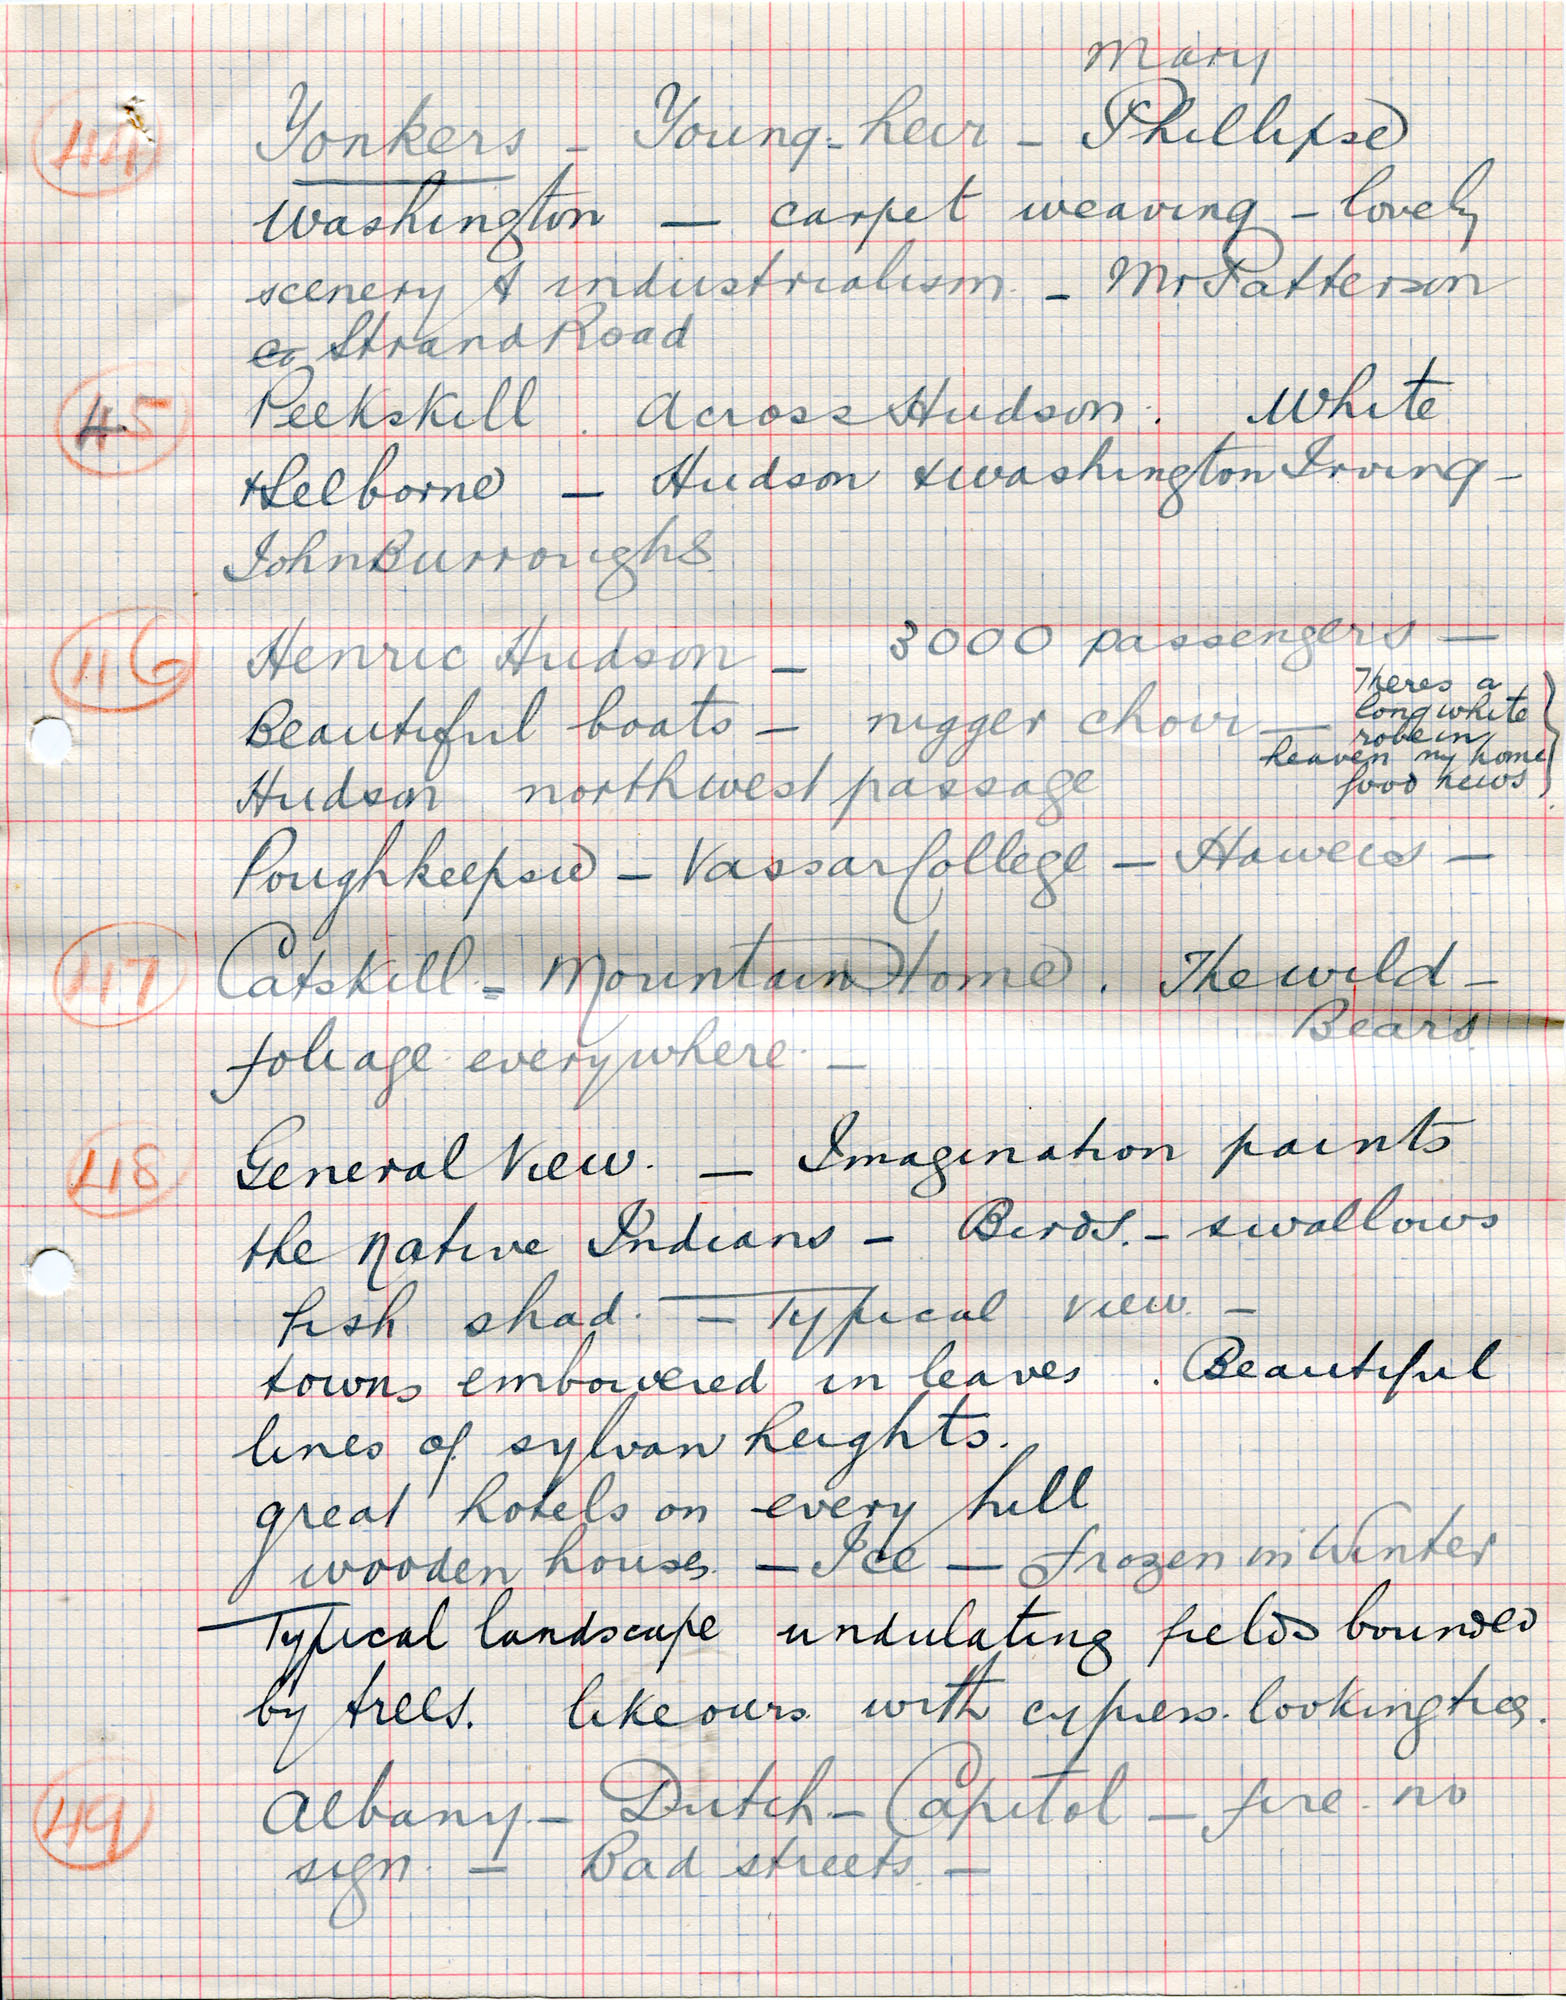 Mary
44 Yonkers - Young-heir - Phillipse
Washington - carpet weaving - lovely
scenery & industrialism - Mr Patterson
Co Strand Road
45 Peekskill. Across Hudson. White
+ Selborne - Hudson & Washington Irving -
John Burroughs
46 Henric Hudson - 3000 passengers -
Beautiful boats - nigger choir - Theres a
long white
robe in
heaven my home
good news
Hudson northwest passage
Poughkeepsie - Vassar College - Howells -
47 Catskill - Mountain Home. The wild -
Bears
foliage everywhere -
48 General View. - Imagination paints
the native Indians - Birds. - swallows
fish shad. - Typical view -
towns embowered in leaves. Beautiful
lines of sylvan heights.
great hotels on every hill
wooden houses - Ice - frozen in Winter
Typical landscape undulating fields bounded
by trees. like ours with cypress looking trees.
49 Albany - Dutch - Capitol - fire no
sign - Bad streets -